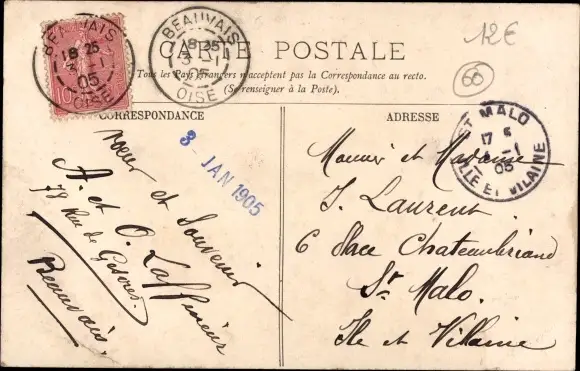 BEAUVAIS
18 25
3 -1
05
OISE
10
BEAUVAIS
18 25
3 -1
05
OISE
12€
60
CARTE POSTALE
Tous les Pays étrangers n'acceptent pas la Correspondance au recto.
(Se renseigner à la Poste).
CORRESPONDANCE
3 - JAN 1905
voeux et Souvenir
A. et O. Laffineur
78 Rue de Gesvres.
Beauvais.
ADRESSE
ST MALO
17 5
-1
05
ILLE ET VILAINE
Monsieur et Madame
J. Laurent
6 Place Chateaubriand
St Malo.
Ile et Villaine